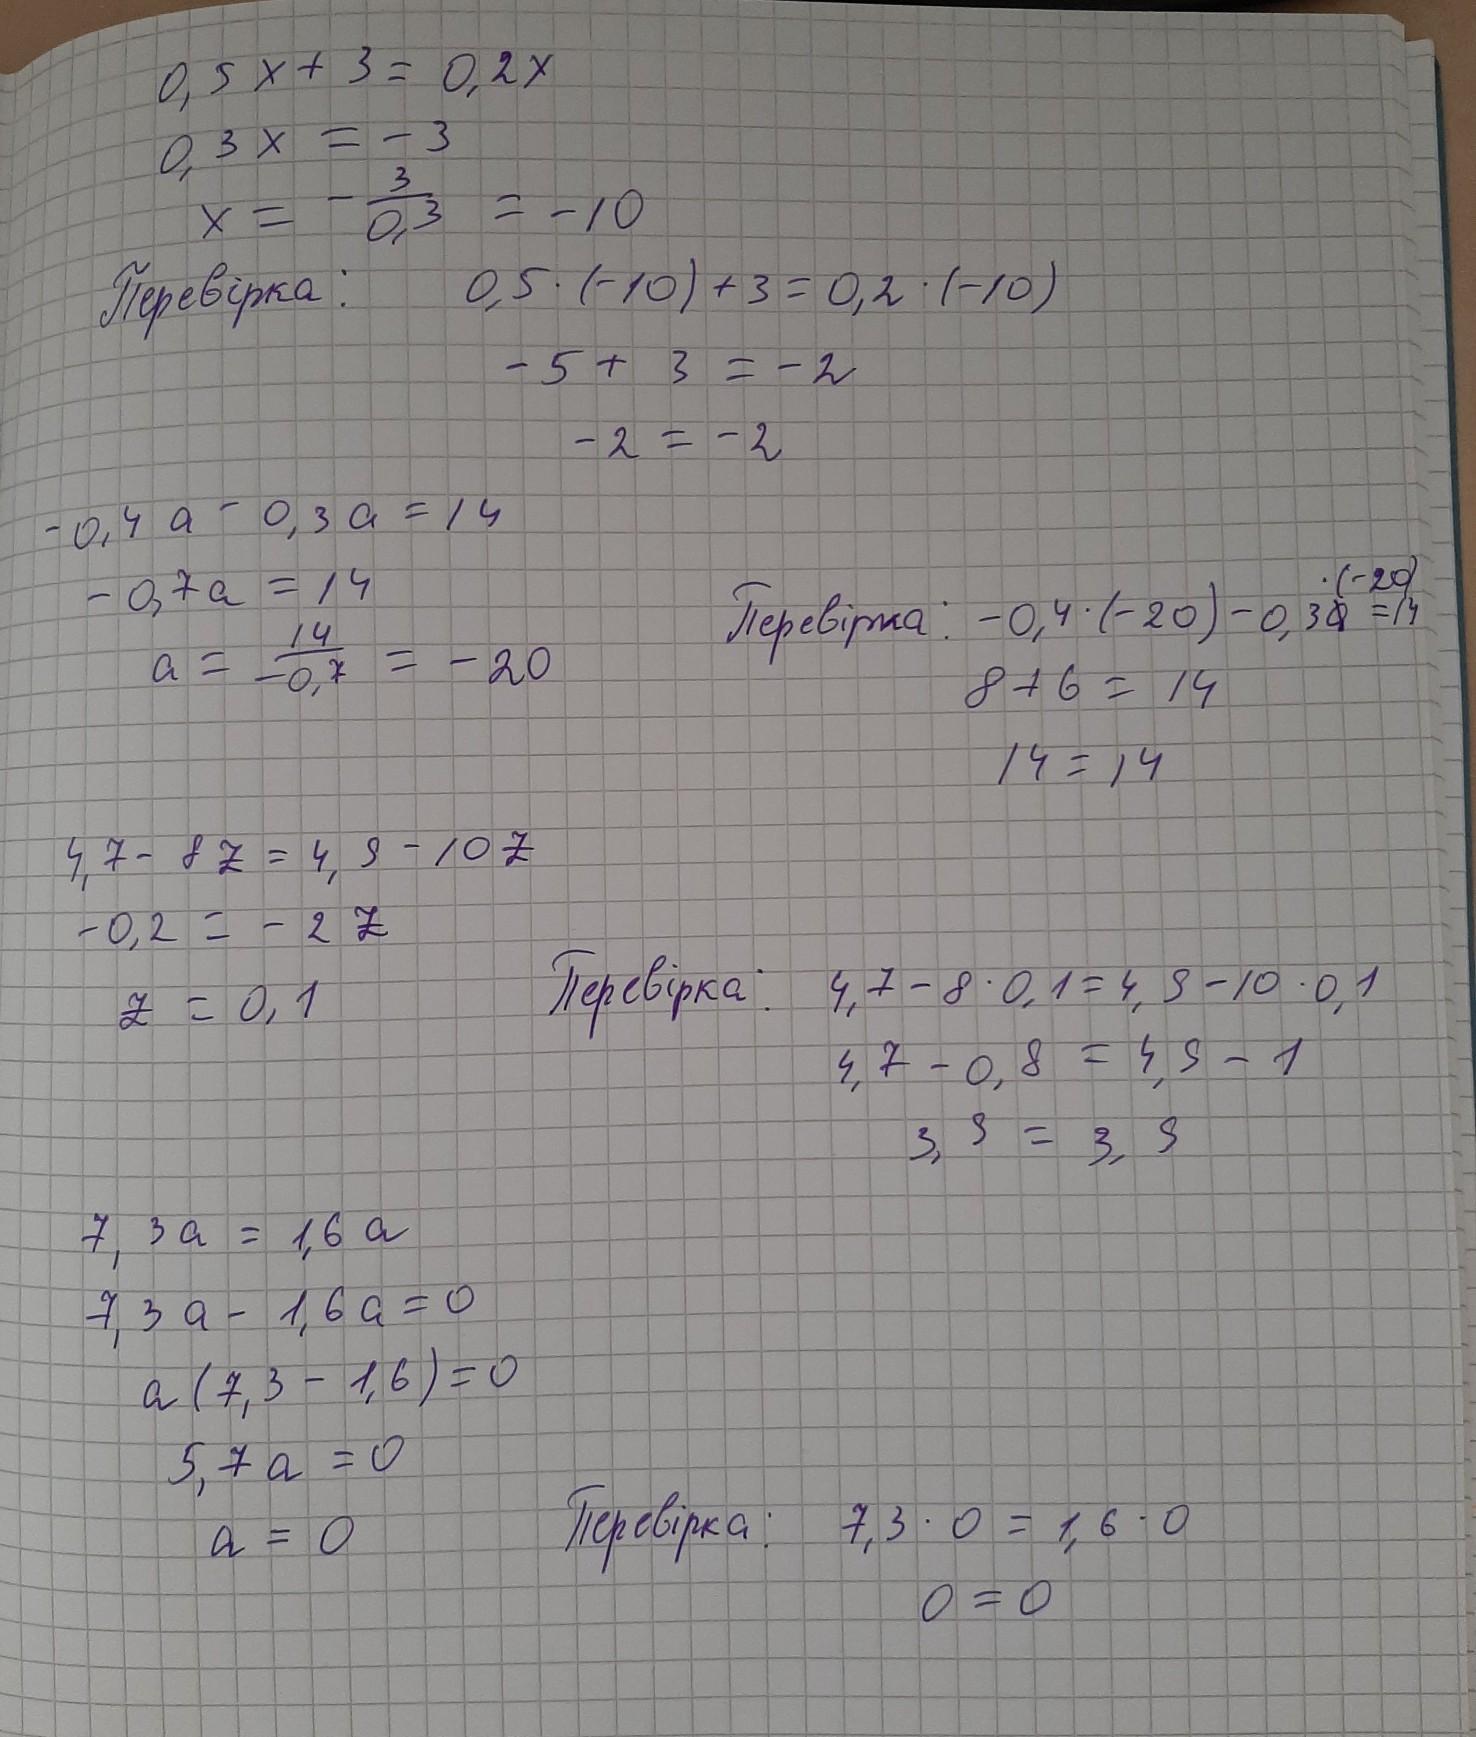 0,5x + 3 = 0,2x
0,3x = -3
x = -3/0,3 = -10
Перевірка: 0,5·(-10)+3=0,2·(-10)
-5 + 3 = -2
-2 = -2
-0,4a - 0,3a = 14
-0,7a = 14
a = 14/-0,7 = -20
Перевірка: -0,4·(-20)-0,3·(-20)=14
8+6 = 14
14 = 14
4,7 - 8z = 4,9 - 10z
-0,2 = -2z
z = 0,1
Перевірка: 4,7-8·0,1=4,9-10·0,1
4,7 - 0,8 = 4,9 - 1
3,9 = 3,9
7,3a = 1,6a
7,3a - 1,6a = 0
a(7,3 - 1,6) = 0
5,7a = 0
a = 0
Перевірка: 7,3·0 = 1,6·0
0 = 0